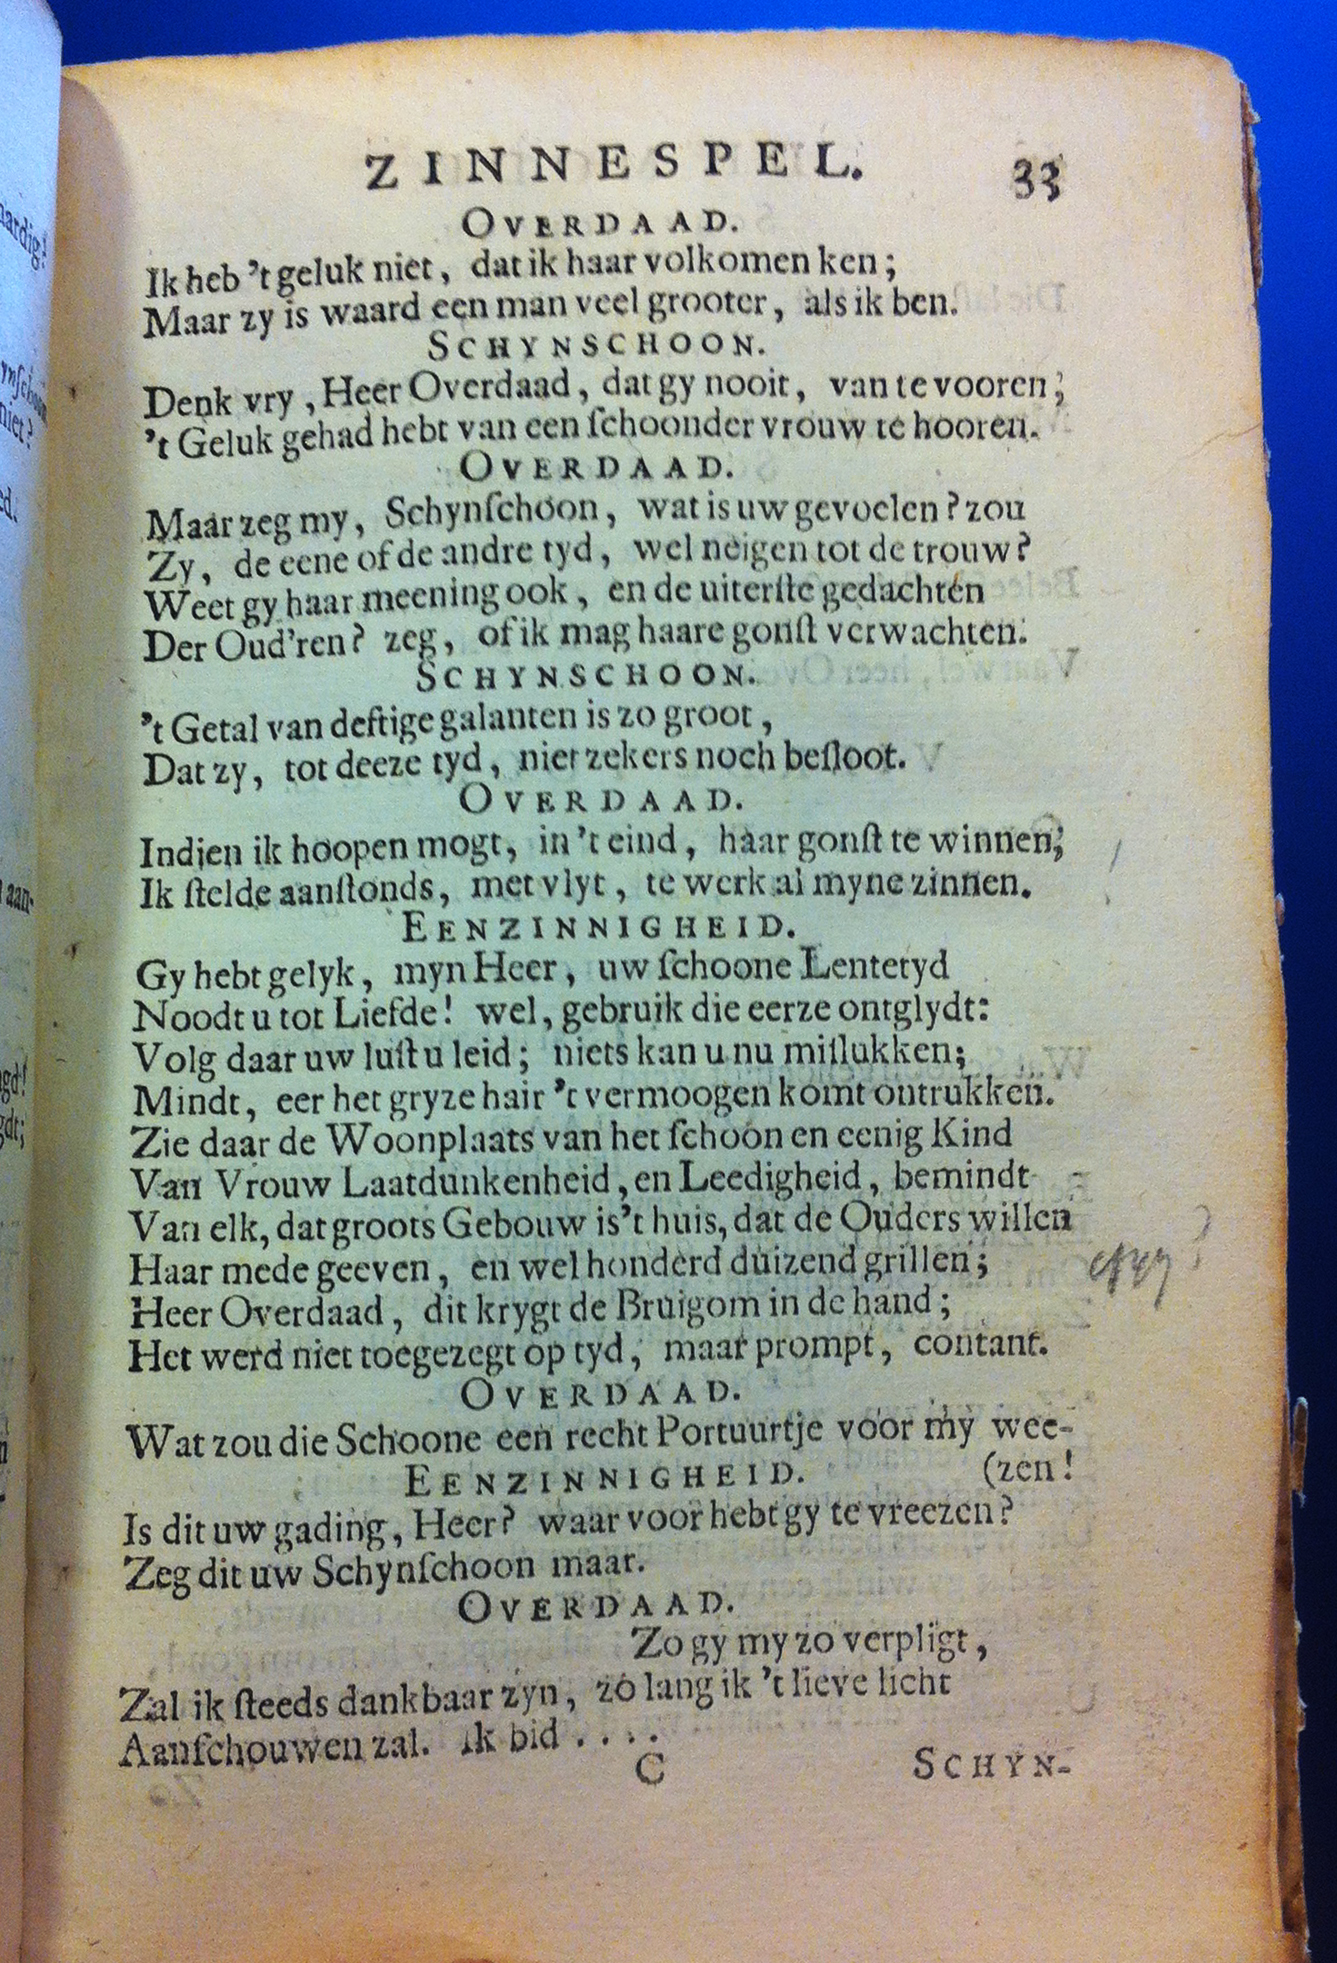 ZINNESPEL. 33
OVERDAAD.
Ik heb 't geluk niet, dat ik haar volkomen ken;
Maar zy is waard een man veel grooter, als ik ben.
SCHYNSCHOON.
Denk vry, Heer Overdaad, dat gy nooit, van te vooren;
't Geluk gehad hebt van een ſchoonder vrouw te hooren.
OVERDAAD.
Maar zeg my, Schynſchoon, wat is uw gevoelen? zou
Zy, de eene of de andre tyd, wel neigen tot de trouw?
Weet gy haar meening ook, en de uiterſte gedachten
Der Oud'ren? zeg, of ik mag haare gonſt verwachten.
SCHYNSCHOON.
't Getal van deftige galanten is zo groot,
Dat zy, tot deeze tyd, niet zekers noch beſloot.
OVERDAAD.
Indien ik hoopen mogt, in 't eind, haar gonſt te winnen;
Ik ſtelde aanſtonds, met vlyt, te werk al myne zinnen.
EENZINNIGHEID.
Gy hebt gelyk, myn Heer, uw ſchoone Lentetyd
Noodt u tot Liefde! wel, gebruik die eerze ontglydt:
Volg daar uw luſt u leid; niets kan u nu miſlukken;
Mindt, eer het gryze hair 't vermoogen komt ontrukken.
Zie daar de Woonplaats van het ſchoon en eenig Kind
Van Vrouw Laatdunkenheid, en Leedigheid, bemindt
Van elk, dat groots Gebouw is't huis, dat de Ouders willen
Haar mede geeven, en wel honderd duizend grillen;
Heer Overdaad, dit krygt de Bruigom in de hand;
Het werd niet toegezegt op tyd, maar prompt, contant.
OVERDAAD.
Wat zou die Schoone een recht Portuurtje voor my wee-
EENZINNIGHEID. (zen!
Is dit uw gading, Heer? waar voor hebt gy te vreezen?
Zeg dit uw Schynſchoon maar.
OVERDAAD.
Zo gy my zo verpligt,
Zal ik ſteeds dankbaar zyn, zo lang ik 't lieve licht
Aanſchouwen zal. Ik bid . . . .
C SCHYN-